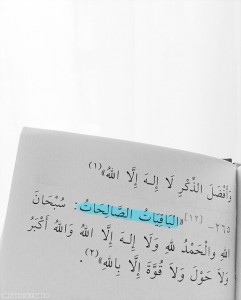 وَأَفْضَلَ الذِّكْرِ لَا إِلـٰهَ إِلَّا اللهُ»(١)
٢٦٥- (١٢) «الْبَاقِيَاتُ الصَّالِحَاتُ: سُبْحَانَ
اللهِ وَالْحَمْدُ لِلهِ وَلَا إِلـٰهَ إِلَّا اللهُ وَاللهُ أَكْبَرُ
وَلَا حَوْلَ وَلَا قُوَّةَ إِلَّا بِاللهِ»(٢).